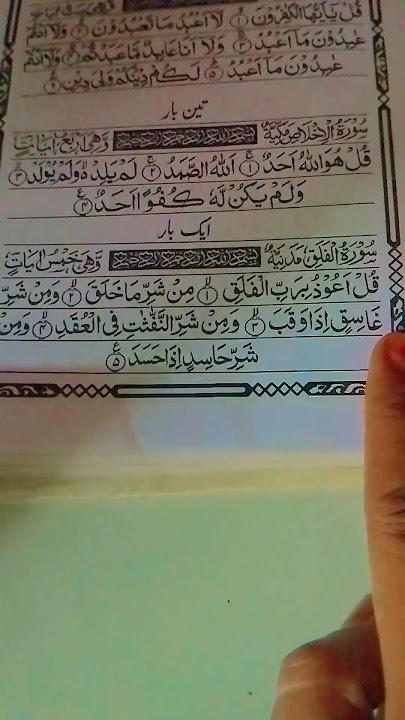 قُلْ يٰۤاَيُّهَا الْكٰفِرُوْنَ ۝۱ لَاۤ اَعْبُدُ مَا تَعْبُدُوْنَ ۝۲ وَلَاۤ اَنْتُمْ
عٰبِدُوْنَ مَاۤ اَعْبُدُ ۝۳ وَلَاۤ اَنَا عَابِدٌ مَّا عَبَدْتُّمْ ۝۴ وَلَاۤ اَنْتُمْ
عٰبِدُوْنَ مَاۤ اَعْبُدُ ۝۵ لَكُمْ دِيْنُكُمْ وَلِيَ دِيْنِ ۝۶
تین بار
سُوْرَةُ الْاِخْلَاصِ مَكِّيَّةٌ بِسْمِ اللّٰهِ الرَّحْمٰنِ الرَّحِيْمِ وَّهِيَ اَرْبَعُ اٰيَاتٍ
قُلْ هُوَ اللّٰهُ اَحَدٌ ۝۱ اَللّٰهُ الصَّمَدُ ۝۲ لَمْ يَلِدْ ۙ وَلَمْ يُوْلَدْ ۝۳
وَلَمْ يَكُنْ لَّهٗ كُفُوًا اَحَدٌ ۝۴
ایک بار
سُوْرَةُ الْفَلَقِ مَدَنِيَّةٌ بِسْمِ اللّٰهِ الرَّحْمٰنِ الرَّحِيْمِ وَّهِيَ خَمْسُ اٰيَاتٍ
قُلْ اَعُوْذُ بِرَبِّ الْفَلَقِ ۝۱ مِنْ شَرِّ مَا خَلَقَ ۝۲ وَمِنْ شَرِّ
غَاسِقٍ اِذَا وَقَبَ ۝۳ وَمِنْ شَرِّ النَّفّٰثٰتِ فِي الْعُقَدِ ۝۴ وَمِنْ
شَرِّ حَاسِدٍ اِذَا حَسَدَ ۝۵